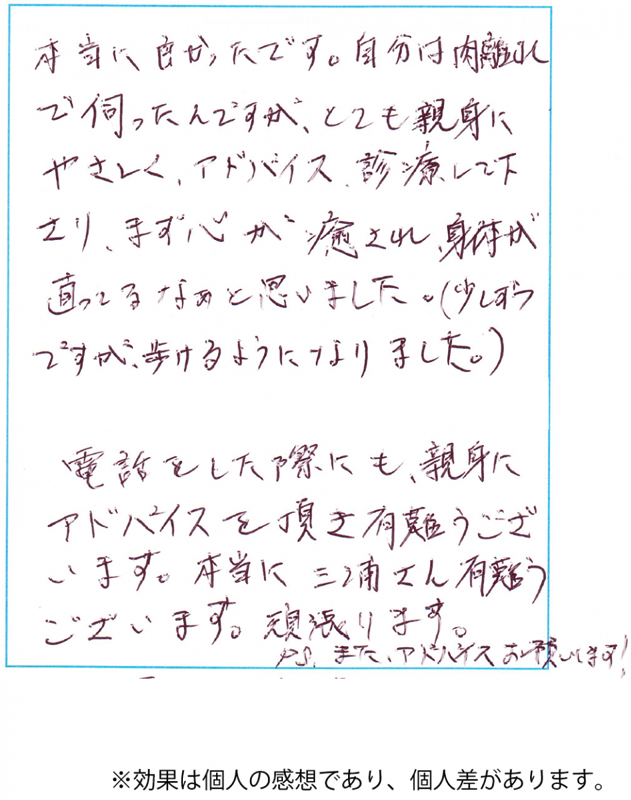 本当に良かったです。自分は肉離れ
で伺ったんですが、とても親身に
やさしく、アドバイス、診療して下
さり、まず心が癒され、身体が
直ってるなぁと思いました。(少しずつ
ですが、歩けるようになりました。)
電話をした際にも、親身に
アドバイスを頂き有難うござ
います。本当に三浦さん有難う
ございます。頑張ります。
P.S. また、アドバイスお願いします!
※効果は個人の感想であり、個人差があります。